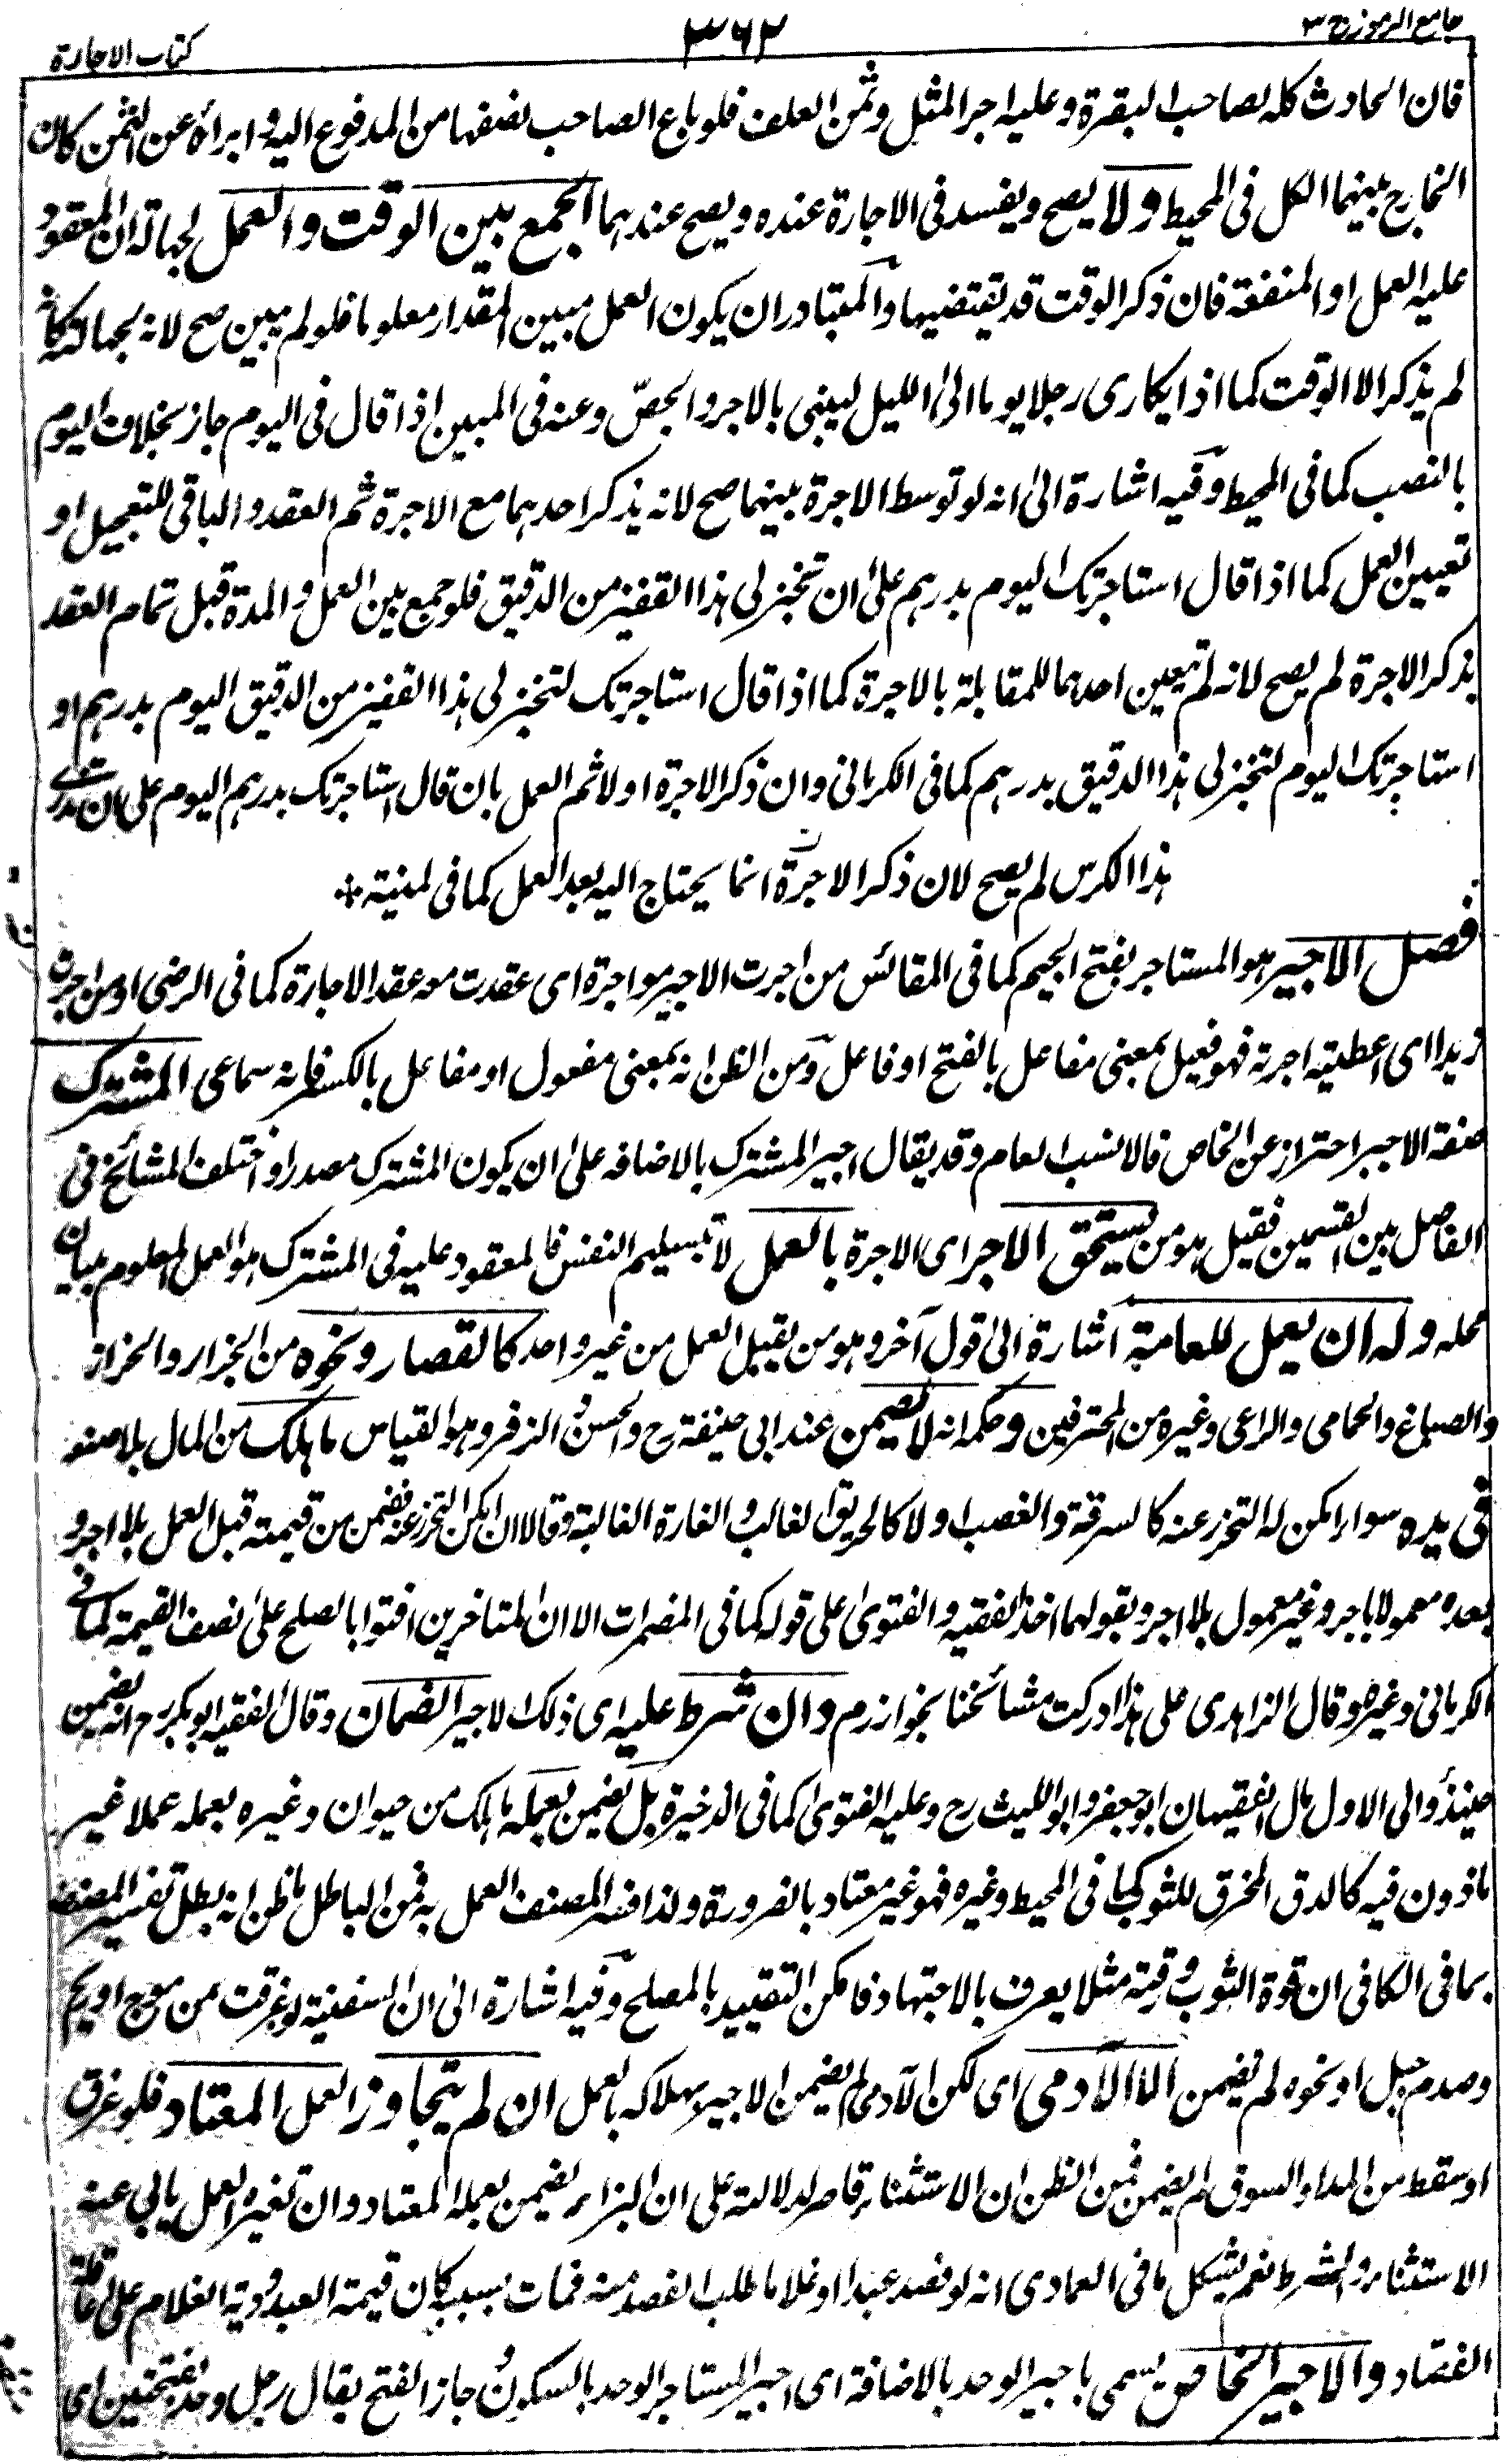 جامع الرموز ج ٣
٣٦٢
كتاب الاجارة
فان الحادث كله لصاحب البقرة وعليه اجر المثل وثمن العلف فلو باع الصاحب نصفها من المدفوع اليه وابرأه عن الثمن كان
الخارج بينهما الكل فى المحيط ولا يصح ويفسد فى الاجارة عنده ويصح عندهما الجمع بين الوقت والعمل لجهالة ان المعقود
عليه العمل او المنفعة فان ذكر الوقت قد يقتضيها والمتبادر ان يكون العمل مبين المقدار معلوما فلو لم يبين صح لانه بجهالته كانه
لم يذكر الا الوقت كما اذا يكارى رجلا يوما الى الليل ليبنى بالاجر والجص وعنه فى المبين اذا قال فى اليوم جاز بخلاف اليوم
بالنصب كما فى المحيط وفيه اشارة الى انه لو توسط الاجرة بينهما صح لانه يذكر احدهما مع الاجرة ثم العقد والباقى للتعجيل او
تعيين العمل كما اذا قال استاجرتك اليوم بدرهم على ان تخبز لى هذا القفيز من الدقيق فلو جمع بين العمل والمدة قبل تمام العقد
بذكر الاجرة لم يصح لانه لم تعين احدهما للمقابلة بالاجرة كما اذا قال استاجرتك لتخبز لى هذا القفيز من الدقيق اليوم بدرهم او
استاجرتك اليوم لتخبز لى هذا الدقيق بدرهم كما فى الكرمانى وان ذكر الاجرة اولا ثم العمل بان قال استاجرتك بدرهم اليوم على ان تذرى
هذا الكدس لم يصح لان ذكر الاجرة انما يحتاج اليه بعد العمل كما فى المنية
فصل الاجير هو المستاجر بفتح الجيم كما فى المقائس من اجرت الاجير مواجرة اى عقدت معه عقد الاجارة كما فى الرضى او من اجرت
زيدا اى اعطيته اجرته فهو فعيل بمعنى مفاعل بالفتح او فاعل ومن الظن انه بمعنى مفعول او مفاعل بالكسر فانه سماعى المشترك
صفة الاجير احتراز عن الخاص فالانسب العام وقد يقال اجير المشترك بالاضافه على ان يكون المشترك مصدرا واختلف المشائخ فى
الفاصل بين القسمين فقيل هو من يستحق الاجر اى الاجرة بالعمل لا بتسليم النفس فالمعقود عليه فى المشترك هو العمل المعلوم ببيان
محله وله ان يعمل للعامة اشارة الى قول آخر وهو من يقبل العمل من غير واحد كالقصار ونحوه من الجزار والخراز
والصباغ والحمامى والراعى وغيره من المحترفين وحكمه انه لا يضمن عند ابى حنيفة رح والحسن والزفر وهو القياس ما هلك من المال بلا صنعه
فى يده سواء امكن له التحرز عنه كالسرقة والغصب او لا كالحريق الغالب والغارة الغالبة وقالا ان امكن التحرز عنه فضمن من قيمته قبل العمل بلا اجر و
بعده معمولا باجر وغير معمول بلا اجر وبقولهما اخذ الفقيه والفتوى على قوله كما فى المضمرات الا ان المتاخرين افتوا بالصلح على نصف القيمة كما فى
الكرمانى وغيره وقال الزاهدى على هذا ادركت مشائخنا بخوارزم وان شرط عليه اى ذلك الاجير الضمان وقال الفقيه ابو بكر رح انه يضمن
حينئذ والى الاول مال الفقيهان ابو جعفر وابو الليث رح وعليه الفتوى كما فى الذخيرة بل يضمن بعمله ما هلك من حيوان وغيره بعمله عملا غير
ماذون فيه كالدق المخرق للثوب كما فى المحيط وغيره فهو غير معتاد بالضرورة ولذا فسر المصنف العمل به فمن الباطل ما ظن انه يبطل تفسير المصنف
بما فى الكافى ان قوة الثوب ورقته مثلا يعرف بالاجتهاد فامكن التقييد بالمصلح وفيه اشارة الى ان السفينة لو غرقت من موج او ريح
وصدم جبل او نحوه لم يضمن الا الآدمى اى لكن الآدمى لم يضمن الاجير بهلاكه بالعمل ان لم يتجاوز العمل المعتاد فلو غرق
او سقط من المداو السوق لم يضمن فمن الظن ان الاستثناء قاصر لدلالته على ان البزاغ يضمن بعمله المعتاد وان تغير العمل يابى عنه
الاستثناء والشرط نعم يشكل ما فى العمادى انه لو فصد عبدا او غلاما طلب الفصد منه فمات بسببه كان قيمة العبد ودية الغلام على عاقلة
الفصاد والاجير الخاص يسمى باجير الوحد بالاضافة اى اجير المستاجر الوحد بالسكون وجاز الفتح يقال رجل وحد بفتحتين اى